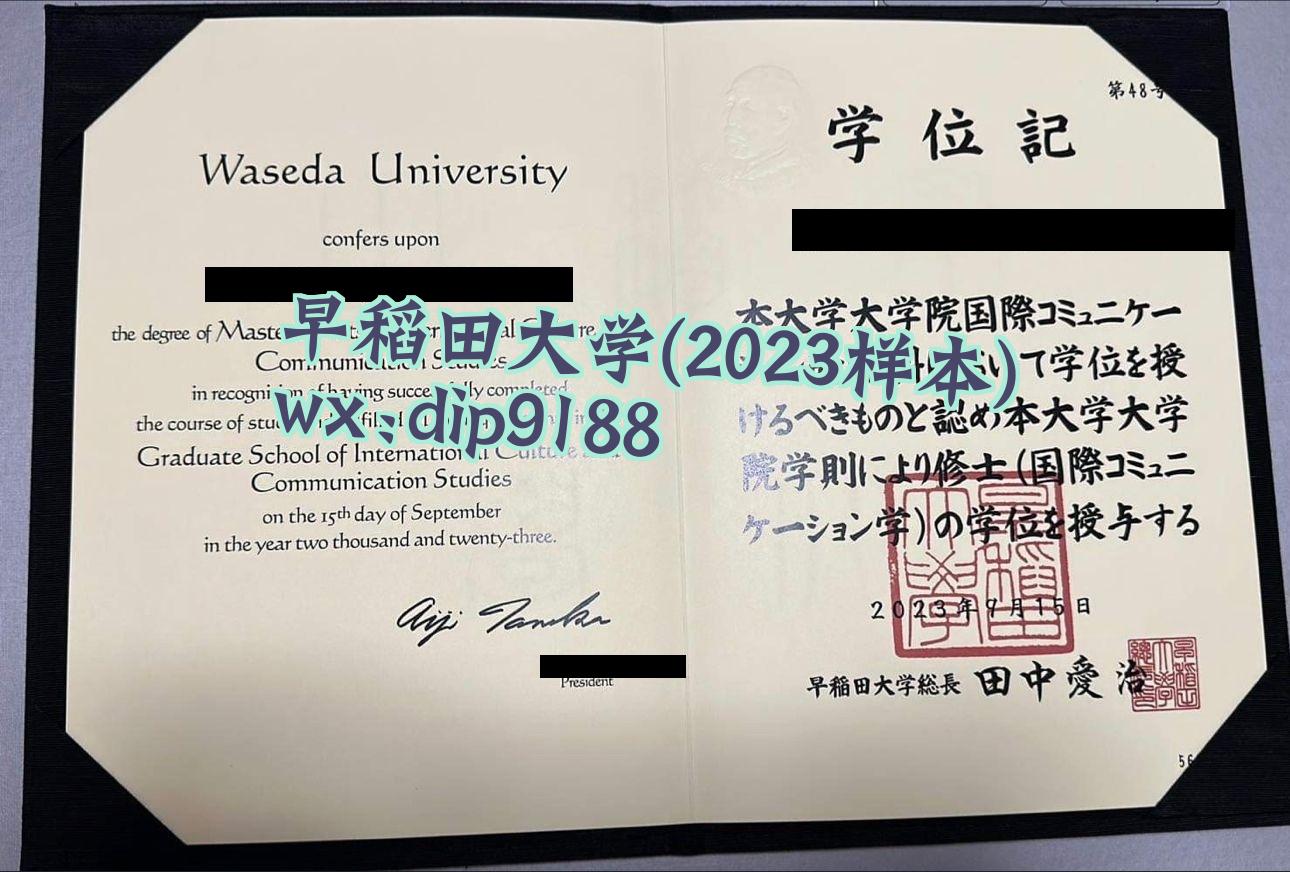 Waseda University
confers upon
the degree of Master
Communication Studies
in recognition of having successfully completed
the course of
Graduate School of International Culture and
Communication Studies
on the 15th day of September
in the year two thousand and twenty-three.
Aiji Tanaka
President
早稲田大学(2023样本)
wx:dip9188
第48号
学位記
本大学大学院国際コミュニケー
いて学位を授
けるべきものと認め本大学大学
院学則により修士(国際コミュニ
ケーション学)の学位を授与する
2023年9月15日
早稲田大学総長 田中愛治
56